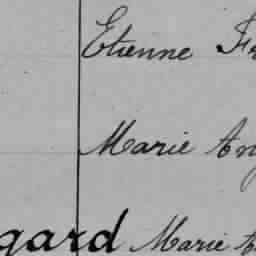 Etienne Fr
Marie An
gard Marie A